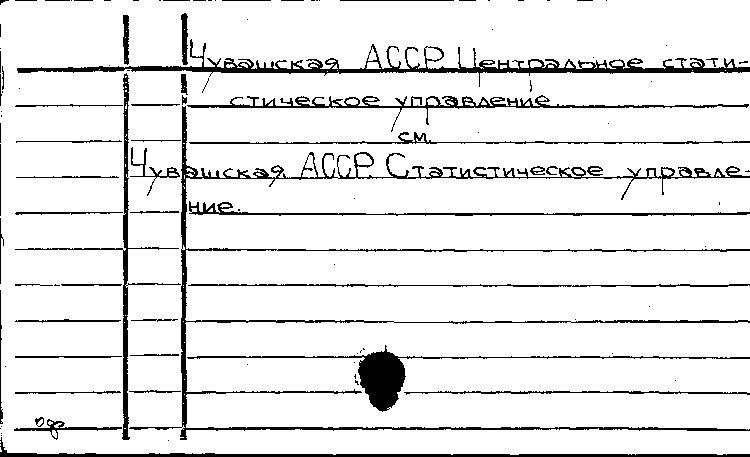 Чувашская АССР. Центральное стати-
стическое управление
см.
Чувашская АССР. Статистическое управле-
ние.